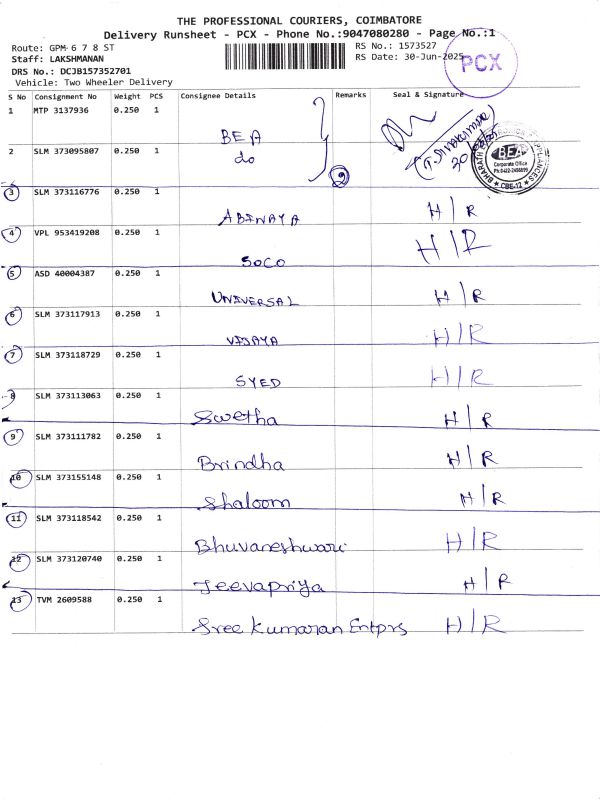 THE PROFESSIONAL COURIERS, COIMBATORE
Delivery Runsheet - PCX - Phone No.:9047080280 - Page No.:1
Route: GPM 6 7 8 ST
RS No.: 1573527
Staff: LAKSHMANAN
RS Date: 30-Jun-2025
PCX
DRS No.: DCJB157352701
Vehicle: Two Wheeler Delivery
S No Consignment No Weight PCS Consignee Details Remarks Seal & Signature
1 MTP 3137936 0.250 1
BEA
2 SLM 373095807 0.250 1
do
BEA
Corporate Office
CBE-12
3 SLM 373116776 0.250 1
ABINAYA H/R
4 VPL 953419208 0.250 1
SOCO H/R
5 ASD 40004387 0.250 1
UNIVERSAL H/R
6 SLM 373117913 0.250 1
VIJAYA H/R
7 SLM 373118729 0.250 1
SYED H/R
8 SLM 373113063 0.250 1
Swetha H/R
9 SLM 373111782 0.250 1
Brindha H/R
10 SLM 373155148 0.250 1
Shaloom H/R
11 SLM 373118542 0.250 1
Bhuvaneshwari H/R
12 SLM 373120740 0.250 1
Jeevapriya H/R
13 TVM 2609588 0.250 1
Sree Kumaran Entprs H/R